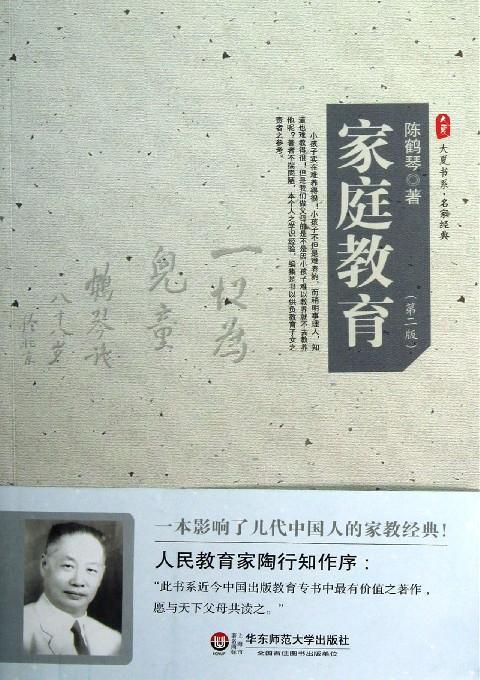 大夏
大夏书系·名家经典
陈鹤琴◎著
家庭教育
（第二版）
小孩子实在难养得很！小孩子不但是难养的，而稍明事理人，知
道也难教得很！但是我们做父母的是不是因小孩子难以教养就不去教养
他呢？著者不揣简陋，本个人之学识经验，编集是书以供负教育子女之
责者之参考。
一切为
兒童
鹤琴
一本影响了几代中国人的家教经典！
人民教育家陶行知作序：
“此书系近今中国出版教育专书中最有价值之著作，
愿与天下父母共读之。”
上海市
著名商标
华东师范大学出版社
全国百佳图书出版单位